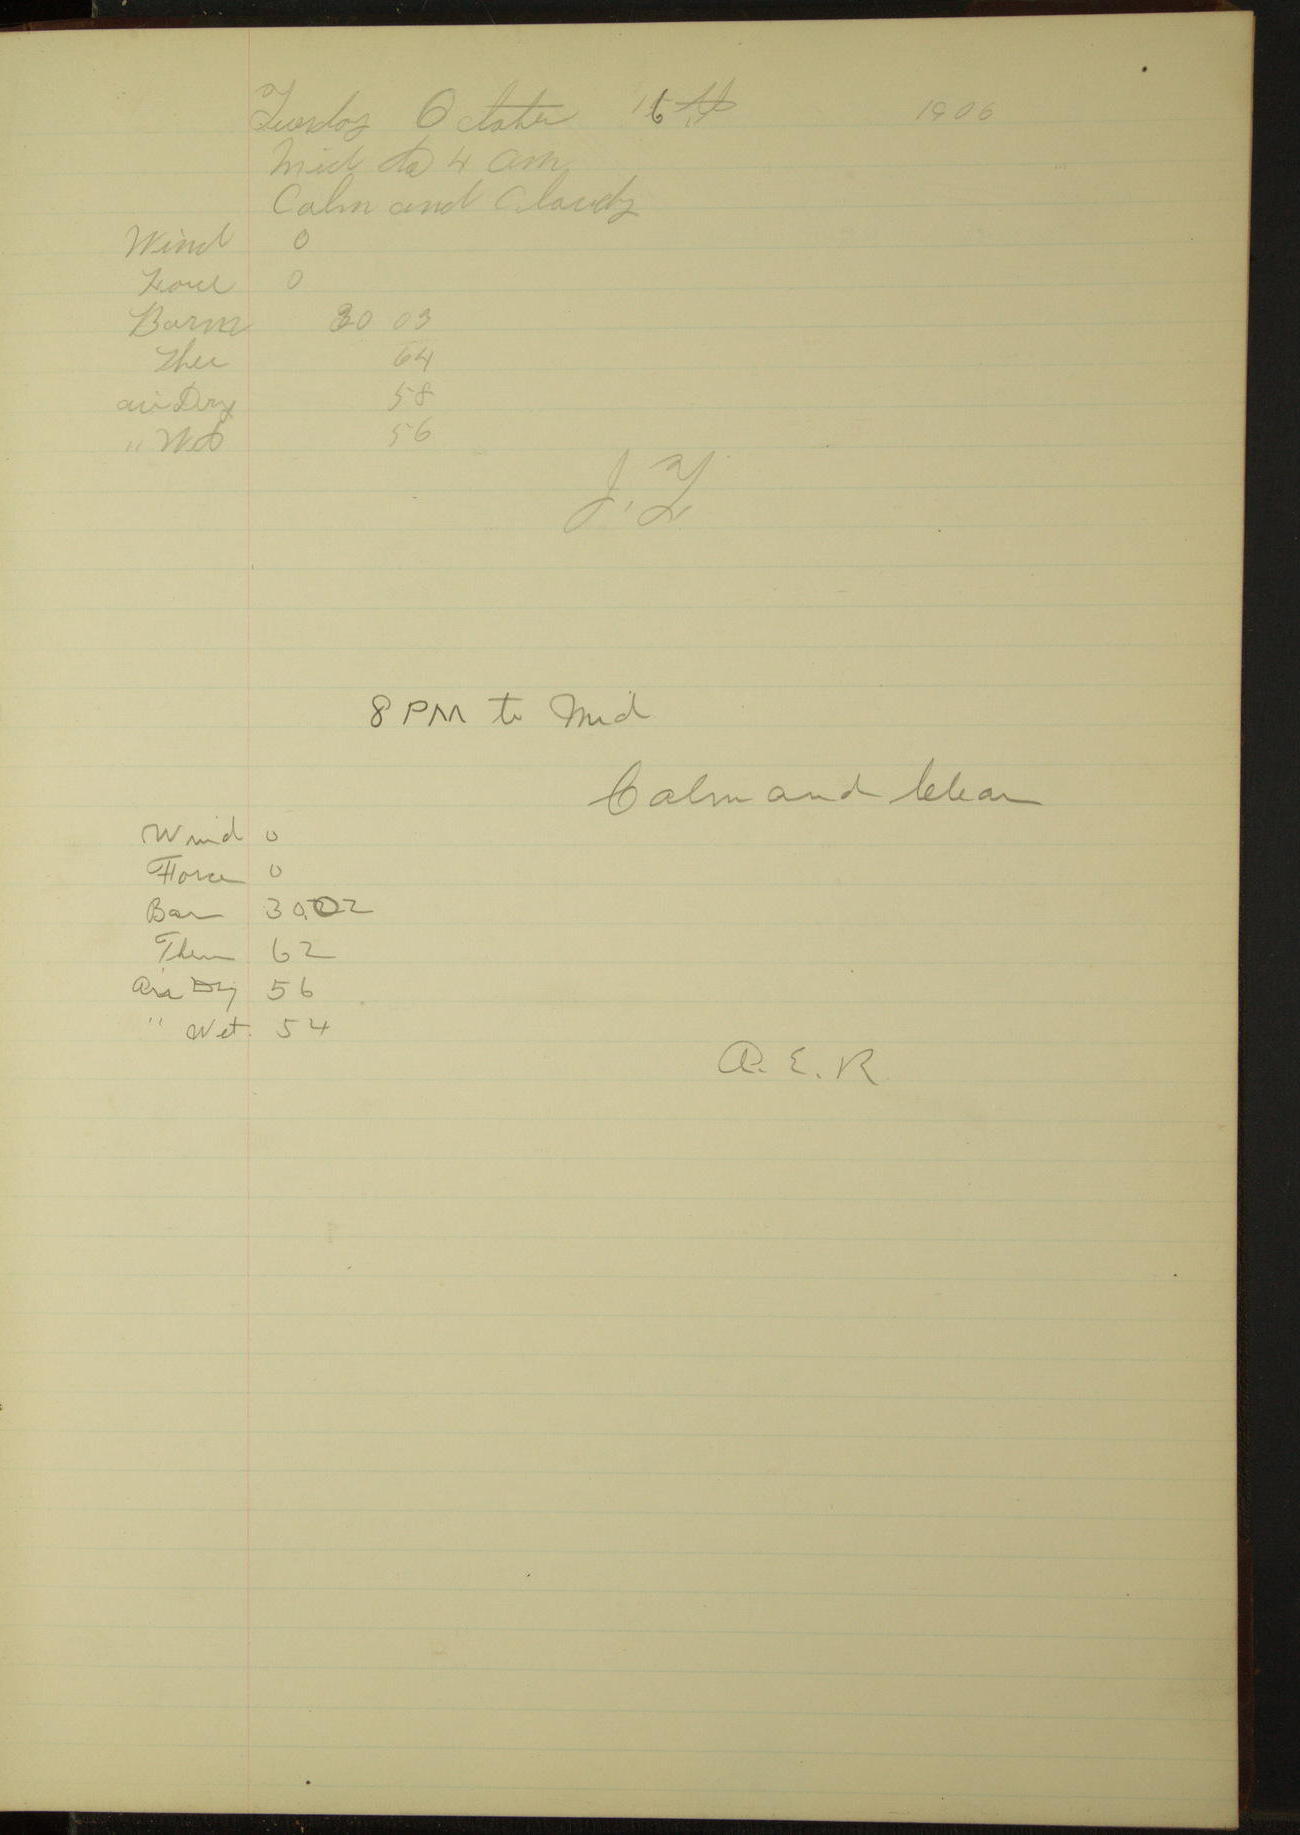 Tuesday October 16th 1906
Mid to 4 am
Calm and Cloudy
Wind 0
Force 0
Barm 30 03
Ther 64
air Dry 58
" Wet 56
8 PM to Mid
Calm and Clear
Wind 0
Force 0
Bar 30.02
Ther 62
Air Dry 56
" Wet. 54
A. E. R